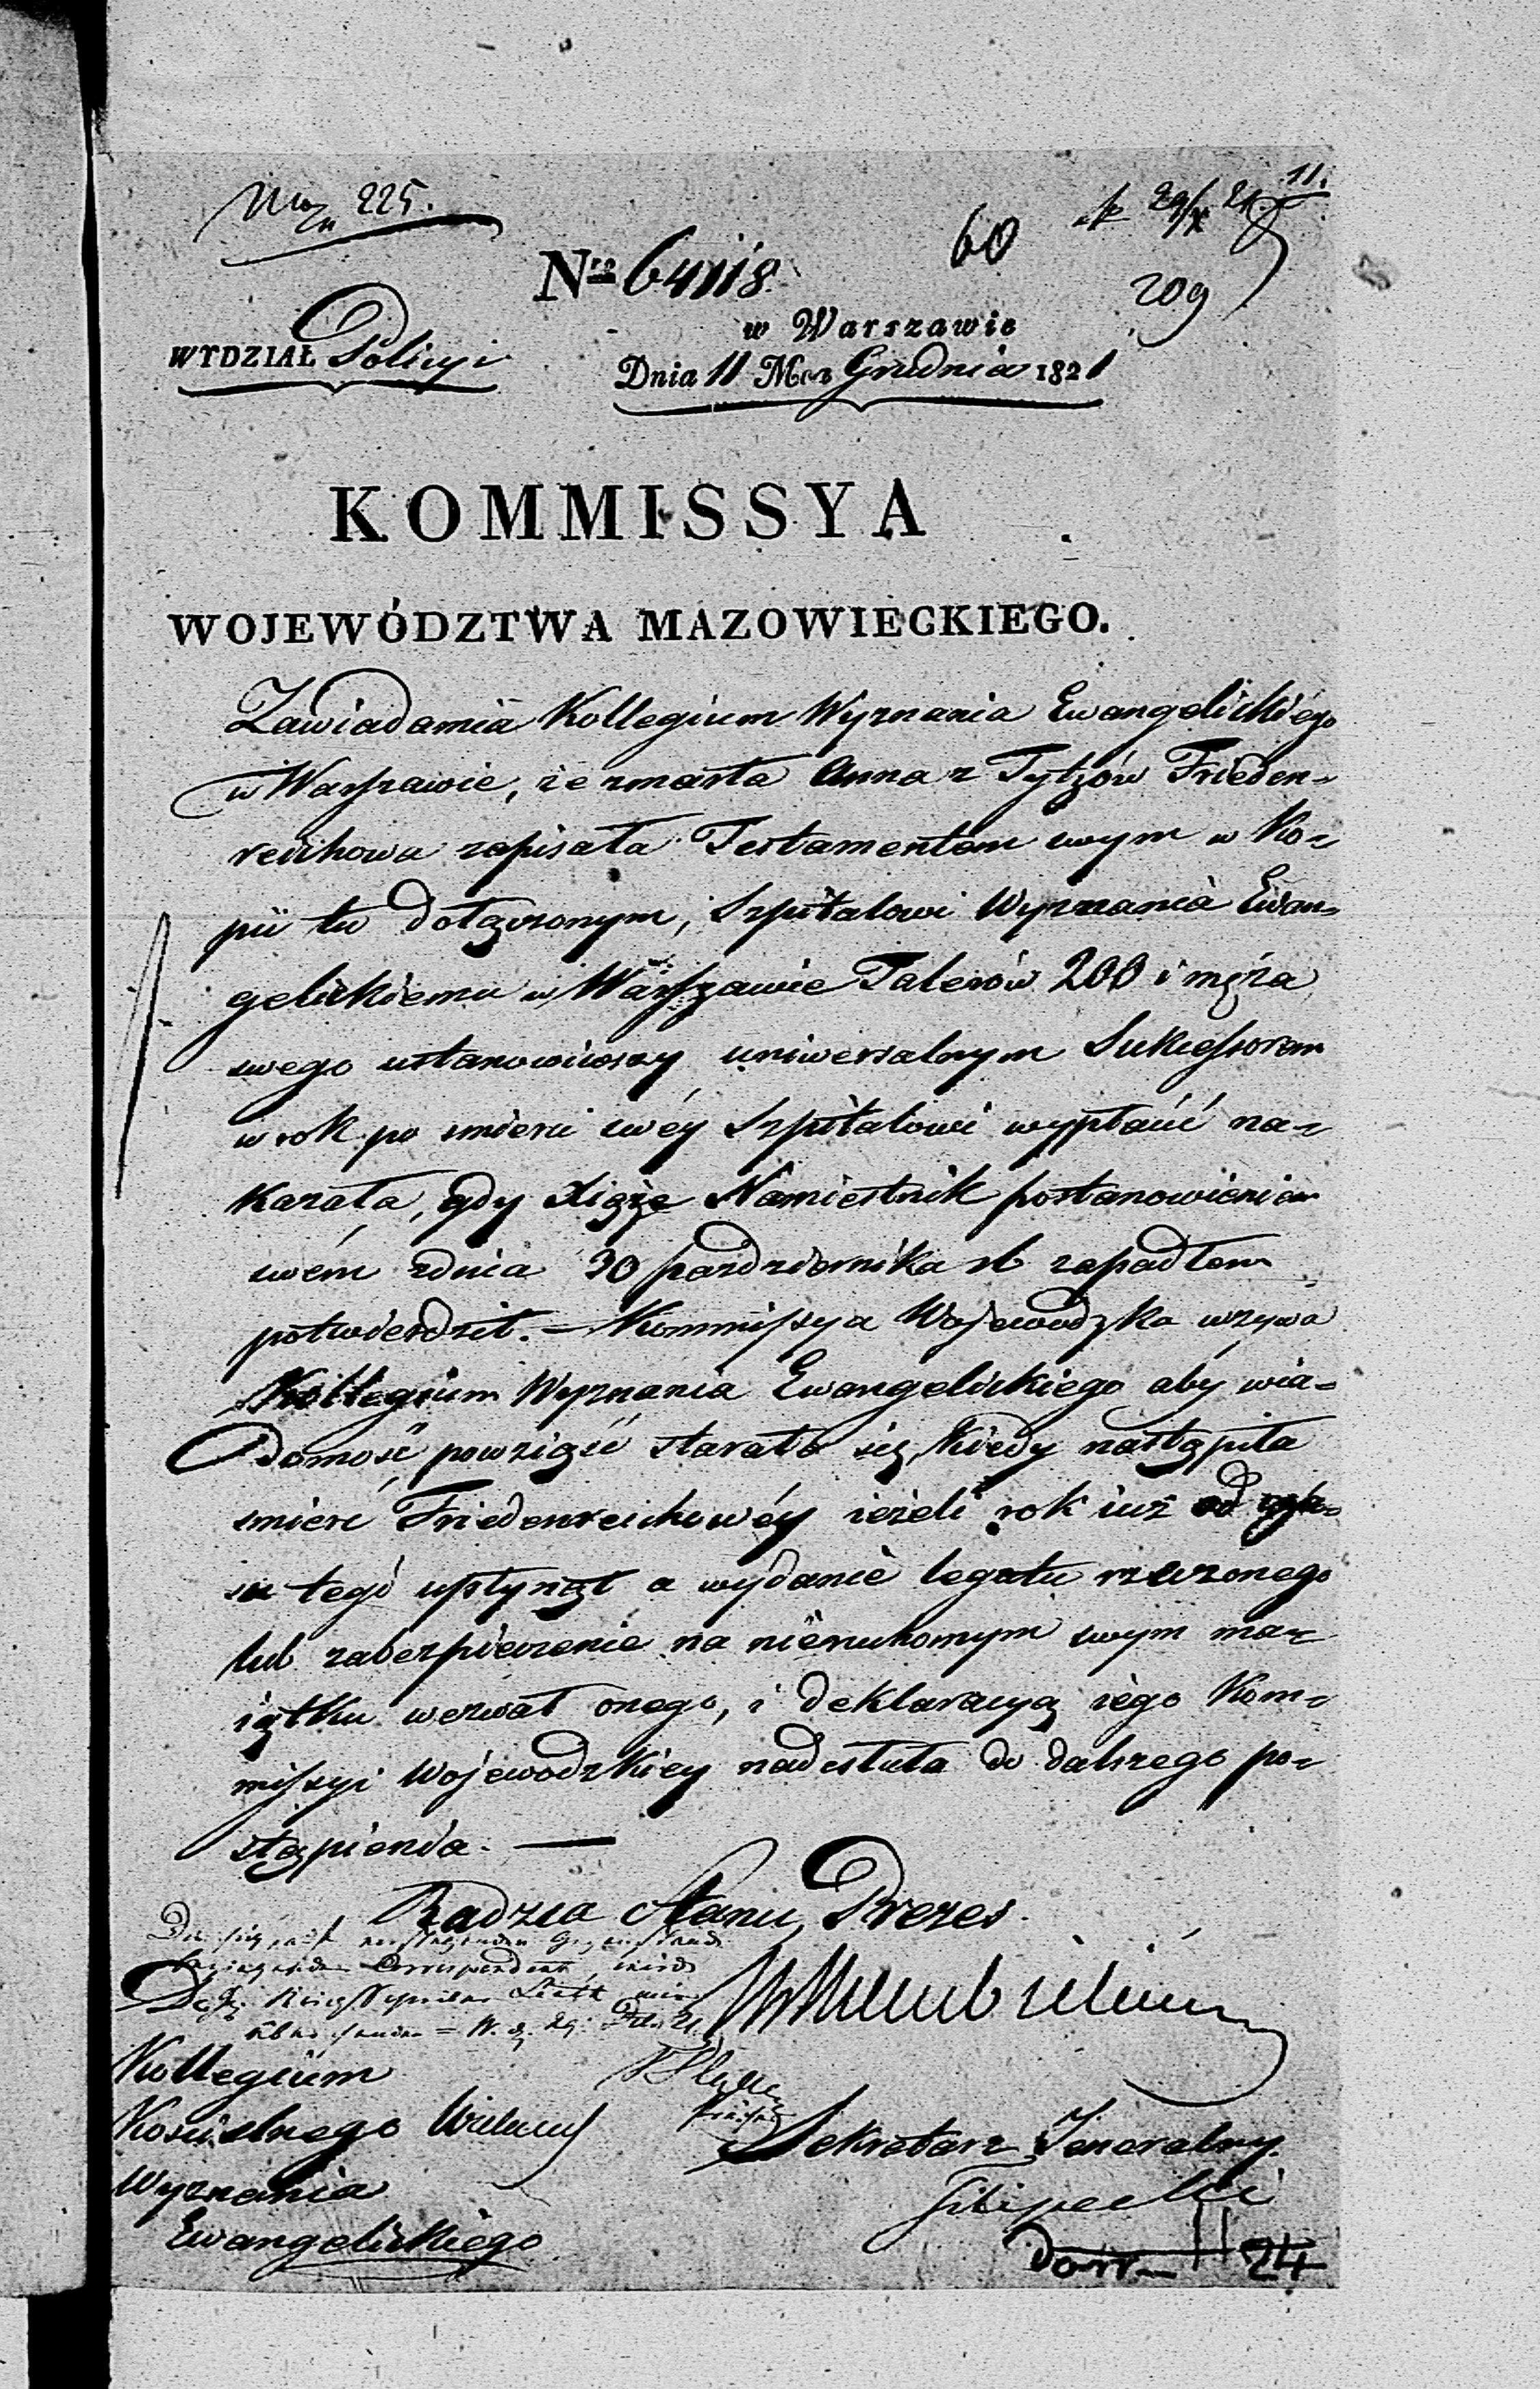 225.
11.
60
Nro 64118.
209
w Warszawie
WYDZIAŁ Policyi
Dnia 11 Mca Grudnia 1821
KOMMISSYA
WOJEWÓDZTWA MAZOWIECKIEGO.
Zawiadamia Kollegium Wyznania Ewangelickiego
w Warszawie, że zmarła Anna z Tytzów Frieden=
reichowa zapisała Testamentem swym w Ko=
pii tu dołączonym, Szpitalowi Wyznania Ewan=
gelickiemu w Warszawie Talerów 200 i męża
swego ustanowiwszy uniwersalnym Sukcessorem
w rok po smierci swéy Szpitalowi wypłacić na=
kazała, gdy Xiąże Namiestnik postanowieniem
swém zdnia 30 pazdziernika rb zapadłem
potwierdził. — Kommissya Wojewodzka wzywa
Kollegium Wyznania Ewangelickiego aby wia=
domość powziąść starało się, kiedy nastąpiła
smierć Friedenreichowéy ieżeli rok iuż od cza=
su tego upłynął a wydanie legatu rzeczonego
lub zabezpieczenie na nieruchomym swym ma=
iątku wezwał onego, i deklaracyą iego Kom=
missyi Wojewodzkiey nadesłała do dalszego po=
stąpienia. —
Radzca Stanu, Prezes.
Kollegium
Kościelnego
Sekretarz Jeneralny.
Wyznania
Filipecki
Ewangelickiego
24